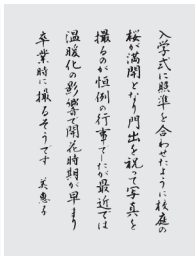 入学式に照準を合わせたように校庭の
桜が満開となり門出を祝って写真を
撮るのが恒例の行事でしたが最近では
温暖化の影響で開花時期が早まり
卒業時に撮るそうです 美恵子